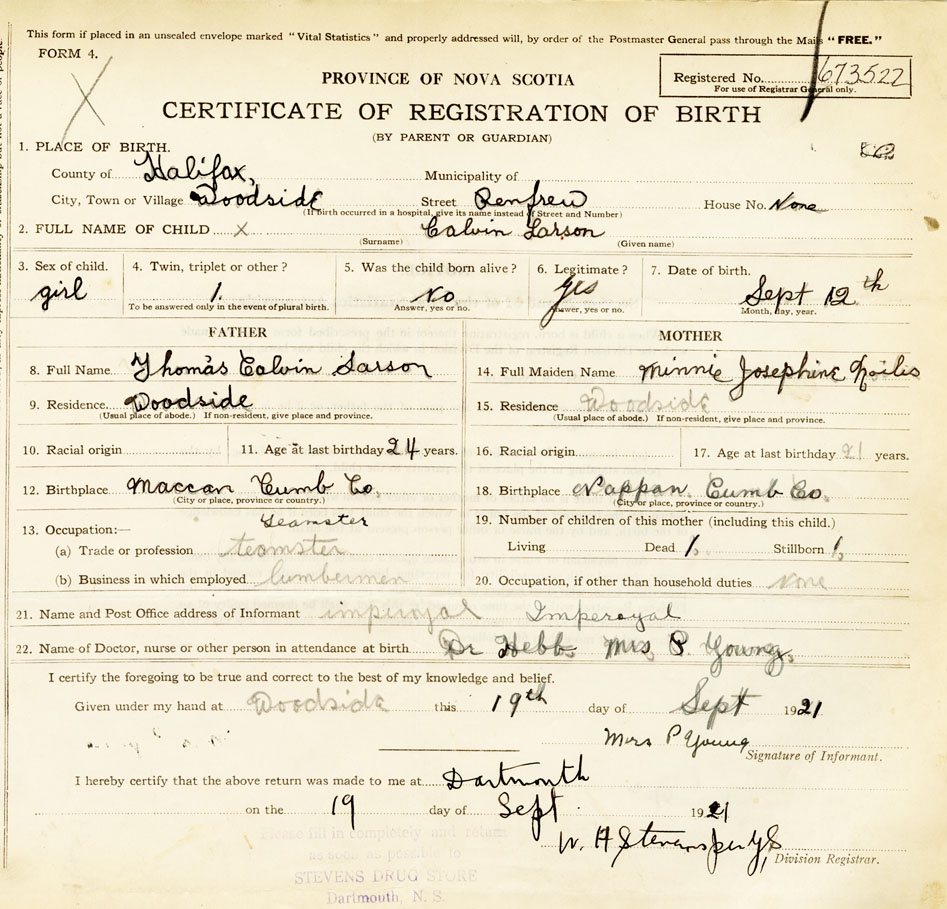 This form if placed in an unsealed envelope marked "Vital Statistics" and properly addressed will, by order of the Postmaster General pass through the Mails "FREE."
FORM 4.
PROVINCE OF NOVA SCOTIA
Registered No. 673522
For use of Registrar General only.
CERTIFICATE OF REGISTRATION OF BIRTH
(BY PARENT OR GUARDIAN)
1. PLACE OF BIRTH.
County of Halifax, Municipality of
City, Town or Village Woodside Street Renfrew House No. None
(If birth occurred in a hospital, give its name instead of Street and Number)
2. FULL NAME OF CHILD X Calvin Larson
(Surname) (Given name)
3. Sex of child. 4. Twin, triplet or other? 5. Was the child born alive? 6. Legitimate? 7. Date of birth.
girl 1. No yes Sept 12th
To be answered only in the event of plural birth. Answer, yes or no. Answer, yes or no. Month, day, year.
FATHER MOTHER
8. Full Name Thomas Calvin Larson 14. Full Maiden Name Minnie Josephine
9. Residence Woodside 15. Residence Woodside
(Usual place of abode.) If non-resident, give place and province. (Usual place of abode.) If non-resident, give place and province.
10. Racial origin 11. Age at last birthday 24 years. 16. Racial origin 17. Age at last birthday 21 years.
12. Birthplace Maccan Cumb Co. 18. Birthplace Nappan Cumb Co.
(City or place, province or country.) (City or place, province or country.)
13. Occupation:— teamster 19. Number of children of this mother (including this child.)
(a) Trade or profession teamster Living Dead 1. Stillborn 1.
(b) Business in which employed lumbermen 20. Occupation, if other than household duties. None
21. Name and Post Office address of Informant imperoyal Imperoyal
22. Name of Doctor, nurse or other person in attendance at birth Dr Hebb Mrs. P. Young.
I certify the foregoing to be true and correct to the best of my knowledge and belief.
Given under my hand at Woodside this 19th day of Sept 1921
Mrs P Young
Signature of Informant.
I hereby certify that the above return was made to me at Dartmouth
on the 19 day of Sept. 1921
W. H Stevens
Division Registrar.
Please fill in completely and return
as soon as possible to
STEVENS DRUG STORE
Dartmouth, N. S.